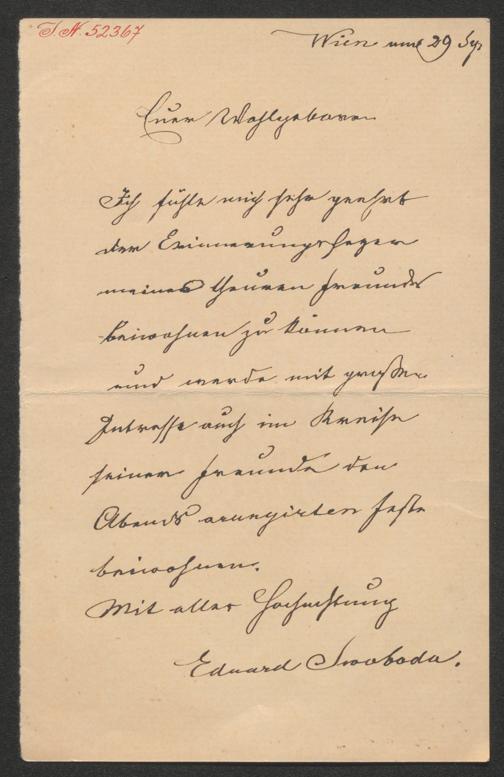 I.N. 52367
Wien am 29 Sep
Euer Wohlgeboren
Ich fühle mich sehr geehrt
der Erinnerungsfeyer
meines theuren Freundes
beiwohnen zu können
und werde mit großem
Intresse auch im Kreise
seiner Freunde den
Abends arangirten Feste
beiwohnen.
Mit aller Hochachtung
Eduard Swoboda.